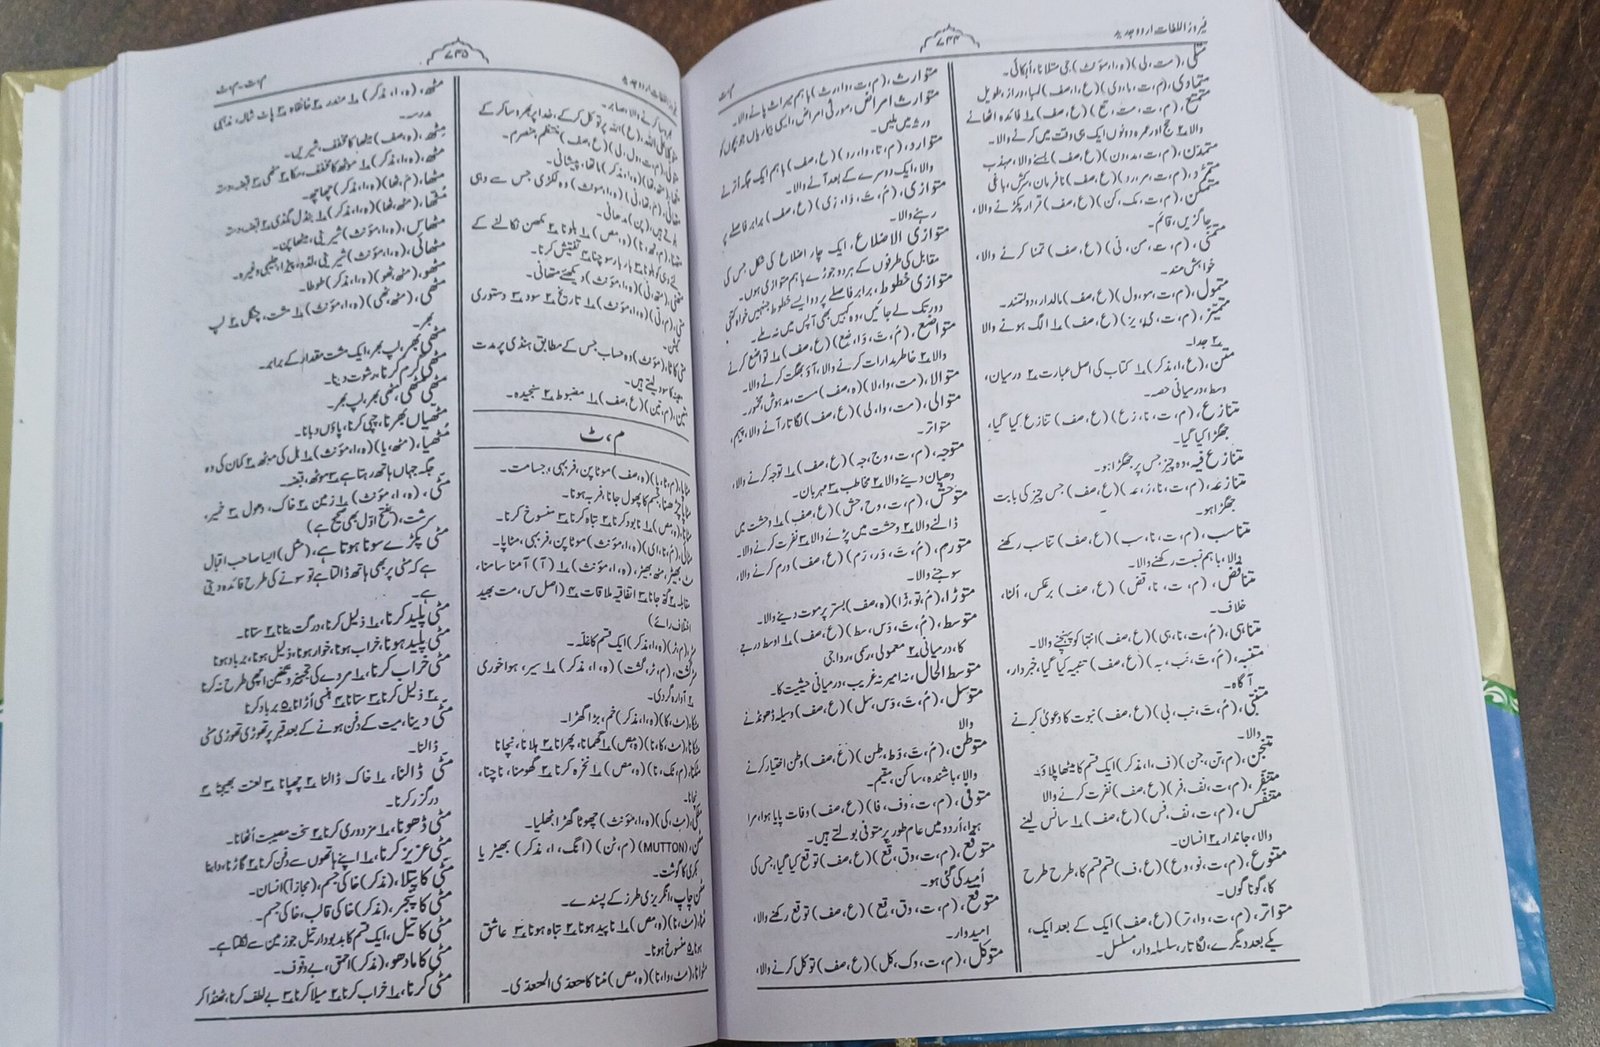 فیروز اللغات اردو جدید
۷۴۴
م ت
متلی، (مت، لی) (ہ، ا، مؤنث) جی متلانا، اُبکائی۔
متمادی، (م، ت، ما، دی) (ع، ا، صف) لمبا، دراز، طویل
متمتع، (م، ت، مت، تع) (ع، صف) ۱؎ فائدہ اٹھانے
والا ۲؎ حج اور عمرہ دونوں ایک ہی وقت میں کرنے والا۔
متمدن، (م، ت، مد، دن) (ع، صف) بسنے والا، مہذب
متمرد، (م، ت، مر، رد) (ع، صف) نافرمان، سرکش، باغی
متمکن، (م، ت، مک، کن) (ع، صف) قرار پکڑنے والا،
جاگزیں، قائم۔
متمنی، (م، ت، من، نی) (ع، صف) تمنا کرنے والا،
خواہش مند۔
متمول، (م، ت، مو، ول) (ع، صف) مالدار، دولتمند۔
متمیز، (م، ت، می، یز) (ع، صف) ۱؎ الگ ہونے والا
۲؎ جدا۔
متن، (ع، ا، مذکر) ۱؎ کتاب کی اصل عبارت ۲؎ درمیان،
وسط، درمیانی حصہ۔
متنازع، (م، ت، نا، زع) (ع، صف) تنازع کیا گیا،
جھگڑا کیا گیا۔
متنازع فیہ، وہ چیز جس پر جھگڑا ہو۔
متنازعہ، (م، ت، نا، زعہ) (ع، صف) جس چیز کی بابت
جھگڑا ہو۔
متناسب، (م، ت، نا، سب) (ع، صف) تناسب رکھنے
والا، باہم نسبت رکھنے والا۔
متناقض، (م، ت، نا، قض) (ع، صف) برعکس، اُلٹا،
خلاف۔
متناہی، (مُ، ت، نا، ہی) (ع، صف) انتہا کو پہنچنے والا۔
متنبہ، (مُ، تَ، نَب، بہ) (ع، صف) تنبیہ کیا گیا، خبردار،
آگاہ۔
متنبی، (مُ، تَ، نب، بی) (ع، صف) نبوت کا دعویٰ کرنے
والا۔
متنجن، (م، تن، جن) (ف، ا، مذکر) ایک قسم کا میٹھا پلاؤ
متنفر، (م، ت، نف، فر) (ع، صف) نفرت کرنے والا
متنفس، (م، ت، نف، فس) (ع، صف) ۱؎ سانس لینے
والا، جاندار ۲؎ انسان۔
متنوع، (م، ت، نو، وع) (ع، ف) قسم قسم کا، طرح طرح
کا، گوناگوں۔
متواتر، (م، ت، وا، تر) (ع، صف) ایک کے بعد ایک،
یکے بعد دیگرے، لگاتار، سلسلہ وار، مسلسل۔
متوارث، (م، ت، وا، رث) باہم میراث پانے والا۔
متوارث امراض، موروثی امراض، ایسی بیماریاں جو بچوں کو
ورثہ میں ملیں۔
متوارد، (م، تا، وا، رد) (ع، صف) باہم ایک جگہ اُترنے
والا، ایک دوسرے کے بعد آنے والا۔
متوازی، (مُ، تَ، وَا، زی) (ع، صف) برابر فاصلے پر
رہنے والا۔
متوازی الاضلاع، ایک چار اضلاع کی شکل جس کی
مقابل کی طرفوں کے ہر دو جوڑے باہم متوازی ہوں۔
متوازی خطوط، برابر فاصلے پر دو ایسے خطوط جنہیں خواہ کتنی
دور تک لے جائیں، وہ کہیں بھی آپس میں نہ ملے۔
متواضع، (مُ، تَ، وَا، ضِع) (ع، صف) ۱؎ تواضع کرنے
والا ۲؎ خاطر مدارات کرنے والا، آؤ بھگت کرنے والا۔
متوالا، (مت، وا، لا) (ہ، صف) مست، مدہوش، مخمور۔
متوالی، (مت، وا، لی) (ع، صف) لگاتار آنے والا، پیہم،
متواتر۔
متوجہ، (م، ت، وج، جہ) (ع، صف) ۱؎ توجہ کرنے والا،
دھیان دینے والا ۲؎ مخاطب ۳؎ مہربان۔
متوحش، (م، ت، وح، حش) (ع، صف) ۱؎ وحشت میں
ڈالنے والا ۲؎ وحشت میں پڑنے والا ۳؎ نفرت کرنے والا۔
متورم، (مُ، تَ، وَر، رَم) (ع، صف) ورم کرنے والا،
سوجنے والا۔
متوڑا، (مُ، تو، ڑا) (ہ، صف) بستر پر موت دینے والا۔
متوسط، (مُ، تَ، وَس، سط) (ع، صف) ۱؎ اوسط درجے
کا، درمیانی ۲؎ معمولی، رسمی، رواجی
متوسط الحال، نہ امیر نہ غریب، درمیانی حیثیت کا۔
متوسل، (مُ، تَ، وَس، سل) (ع، صف) وسیلہ ڈھونڈنے
والا
متوطن، (مُ، تَ، وَط، طن) (ع، صف) وطن اختیار کرنے
والا، باشندہ، ساکن، مقیم۔
متوفی، (م، ت، وَف، فا) (ع، صف) وفات پایا ہوا، مرا
ہوا، اُردو میں عام طور پر متوفی بولتے ہیں۔
متوقع، (م، ت، وق، قَع) (ع، صف) توقع کیا گیا، جس کی
اُمید کی گئی ہو۔
متوقع، (م، ت، وق، قع) (ع، صف) توقع رکھنے والا،
امیدوار۔
متوکل، (م، ت، وک، کل) (ع، صف) توکل کرنے والا،
۷۴۵
بھروسا کرنے والا، صابر۔
متوکلاً علی اللہ، (ع) اللہ پر توکل کر کے، خدا پر بھروسا کر کے
متولی، (م، ت، ول، لی) (ع، صف) منتظم، منصرم۔
متھا، (مت، تھا) (ہ، ا، مذکر) ماتھا، پیشانی۔
متھانی، (م، تھا، نی) (ہ، ا، مونث) وہ لکڑی جس سے دہی
بلوتے ہیں، (پن) مدھانی۔
متھنا، (م، تھ، نا) (ہ، مص) ۱؎ بلونا ۲؎ مکھن نکالنے کے
لئے دہی کو بلونا ۳؎ بار بار سوچنا ۴؎ تفتیش کرنا۔
متھنی، (متھ، نی) (ہ، ا، مؤنث) دیکھئے متھانی۔
متی، (م، تی) (ہ، ا، مؤنث) ۱؎ تاریخ ۲؎ سود ۳؎ دستوری
کمیشن۔
متی کاٹا، (مؤنث) وہ حساب جس کے مطابق ہنڈی پر مدت
معینہ کا سود لیتے ہیں۔
متین، (م، تین) (ع، صف) ۱؎ مضبوط ۲؎ سنجیدہ۔
م، ٹ
مٹاپا، (م، ٹا، پا) (ہ، صف) موٹا پن، فربہی، جسامت۔
مٹاپا چڑھنا، جسم کا پھول جانا، فربہ ہونا۔
مٹانا، (ہ، مص) ۱؎ نابود کرنا ۲؎ تباہ کرنا ۳؎ منسوخ کرنا۔
مٹائی، (م، ٹا، ای) (ہ، ا، مؤنث) موٹا پن، فربہی، مٹاپا۔
مٹ بھیڑ، مٹھ بھیڑ، (ہ، ا، مؤنث) ۱؎ (آ) آمنا سامنا،
مقابلہ ۲؎ گتھ جانا ۳؎ اتفاقیہ ملاقات ۴؎ (اصل س، مت بھید
اختلاف رائے)
مٹر، (م، ٹر) (ہ، ا، مذکر) ایک قسم کا غلہ۔
مٹرگشت، (م، ٹر، گشت) (ہ، ا، مذکر) ۱؎ سیر، ہوا خوری
۲؎ آوارہ گردی۔
مٹکا، (مٹ، کا) (ہ، ا، مذکر) خم، بڑا گھڑا۔
مٹکانا، (مٹ، کا، نا) (ہ، مص) ۱؎ گھمانا، پھرانا ۲؎ ہلانا، نچانا
مٹکنا، (م، ٹک، نا) (ہ، مص) ۱؎ نخرہ کرنا ۲؎ گھومنا، ناچنا،
نچانا۔
مٹکی، (مٹ، کی) (ہ، ا، مؤنث) چھوٹا گھڑا، ٹھلیا۔
مٹن، (MUTTON) (م، ٹن) (انگ، ا، مذکر) بھیڑ یا
بکری کا گوشت۔
مٹن چاپ، انگریزی طرز کے پسندے۔
مٹنا، (مٹ، نا) (ہ، مص) ۱؎ ناپید ہونا ۲؎ تباہ ہونا ۳؎ عاشق
ہونا ۵؎ منسوخ ہونا۔
مٹوانا، (مٹ، وا، نا) (ہ، مص) مٹنا کا متعدی المتعدی۔
مٹھ، (ہ، ا، مذکر) ۱؎ مندر ۲؎ خانقاہ ۳؎ پاٹ شالہ، مذہبی
مدرسہ۔
مٹھ، (ہ، صف) میٹھا کا مخفف، شیریں۔
مٹھ، (ہ، ا، مذکر) ۱؎ موٹھ کا مخفف، مکا ۲؎ مٹھی ۳؎ قبضہ، دستہ
مٹھا، (م، ٹھا) (ہ، ا، مذکر) چھاچھ۔
مٹھا، (مٹ، ٹھا) (ہ، ا، مذکر) ۱؎ بنڈل گڈی ۲؎ قبضہ، دستہ
مٹھاس، (ہ، ا، مؤنث) شیرینی، میٹھا پن۔
مٹھائی، (ہ، ا، مؤنث) شیرینی، لڈو، پیڑا، جلیبی وغیرہ۔
مٹھو، (مٹھ، ٹھو) (ہ، ا، مذکر) طوطا۔
مٹھی، (مٹھ، ٹھی) (ہ، ا، مؤنث) ۱؎ مشت، چنگل ۲؎ لپ
بھر۔
مٹھی بھر، لپ بھر، ایک مشت مقدار کے برابر۔
مٹھی گرم کرنا، رشوت دینا۔
مٹھی مٹھی، مٹھی بھر، لپ بھر۔
مٹھیاں بھرنا، چپی کرنا، پاؤں دبانا۔
مٹھیا، (مٹھ، یا) (ہ، ا، مؤنث) ۱؎ ہل کی موٹھ ۲؎ کمان کی وہ
جگہ جہاں ہاتھ رہتا ہے ۳؎ موٹھ، قبضہ۔
مٹی، (ہ، ا، مؤنث) ۱؎ زمین ۲؎ خاک، دھول ۳؎ خمیر،
سرشت، (بفتح اوّل بھی صحیح ہے)
مٹی پکڑے سونا ہوتا ہے، (مثل) ایسا صاحب اقبال
ہے کہ مٹی پر بھی ہاتھ ڈالتا ہے تو سونے کی طرح فائدہ دیتی
ہے۔
مٹی پلید کرنا، ۱؎ ذلیل کرنا، درگت بنانا ۲؎ ستانا۔
مٹی پلید ہونا، خراب ہونا، خوار ہونا، ذلیل ہونا، برباد ہونا
مٹی خراب کرنا، ۱؎ مردے کی تجہیز و تکفین اچھی طرح نہ کرنا
۲؎ ذلیل کرنا ۳؎ ستانا ۴؎ ہنسی اُڑانا ۵؎ برباد کرنا
مٹی دینا، میت کے دفن ہونے کے بعد قبر پر تھوڑی تھوڑی مٹی
ڈالنا۔
مٹی ڈالنا، ۱؎ خاک ڈالنا ۲؎ چھپانا ۳؎ لعنت بھیجنا ۴؎
درگزر کرنا۔
مٹی ڈھونا، ۱؎ مزدوری کرنا ۲؎ سخت مصیبت اُٹھانا۔
مٹی عزیز کرنا، ۱؎ اپنے ہاتھوں سے دفن کرنا ۲؎ گاڑنا، دابنا
مٹی کا پتلا، (مذکر) خاکی جسم، (مجازاً) انسان۔
مٹی کا پنجر، (مذکر) خاکی قالب، خاکی جسم۔
مٹی کا تیل، ایک قسم کا بدبودار تیل جو زمین سے نکلتا ہے۔
مٹی کا مادھو، (مذکر) احمق، بے وقوف۔
مٹی کرنا، ۱؎ خراب کرنا ۲؎ میلا کرنا ۳؎ بے لطف کرنا، ٹھنڈا کر